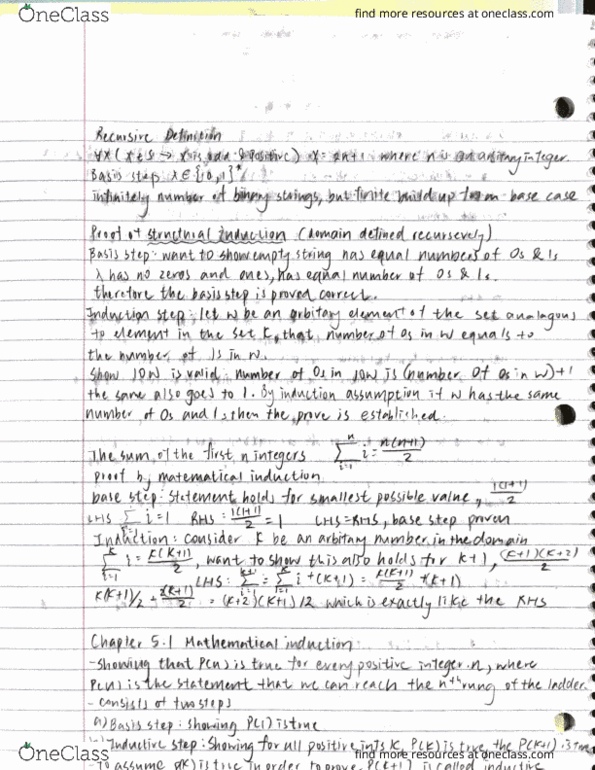 OneClass
find more resources at oneclass.com
Recursive Definition
∀x(x∈S → x is odd & positive) x = 2n+1 where n is an arbitary integer.
Basis step λ∈{0,1}*
infinitely number of binary strings, but finite build up from base case
Proof of structrual induction (domain defined recursevely)
Basis step: want to show empty string has equal numbers of 0s & 1s
λ has no zeros and ones, has equal number of 0s & 1s.
therefore the basis step is proved correct.
Induction step: let w be an arbitary element of the set analagous
to element in the set k, that number of 0s in w equals to
the number of 1s in w.
Show 10w is valid: number of 0s in 10w is (number of 0s in w)+1
the same also goes to 1. By induction assumption if w has the same
number of 0s and 1s then the prove is established.
The sum of the first n integers ∑_{i=1}^{n} i = n(n+1)/2
proof by matematical induction
base step: Statement holds for smallest possible value, 1(1+1)/2
LHS ∑_{i=1} i = 1 RHS: 1(1+1)/2 = 1 LHS=RHS, base step proven
Induction: consider k be an arbitary number in the domain
∑_{i=1}^{k} i = k(k+1)/2, want to show this also holds for k+1, (k+1)(k+2)/2
LHS: ∑_{i=1}^{k+1} = ∑_{i=1}^{k} i + (k+1) = k(k+1)/2 + (k+1)
k(k+1)/2 + 2(k+1)/2 = (k+2)(k+1)/2 which is exactly like the RHS
Chapter 5.1 Mathematical induction
-showing that P(n) is true for every positive integer n, where
P(n) is the statement that we can reach the nth rung of the ladder.
- consists of two steps
a) Basis step: showing P(1) is true
Inductive step: Showing for all positive ints k, P(k) is true, the P(k+1) is true
-To assume P(k) is true in order to prove P(k+1) is called inductive
OneClass
find more resources at oneclass.com